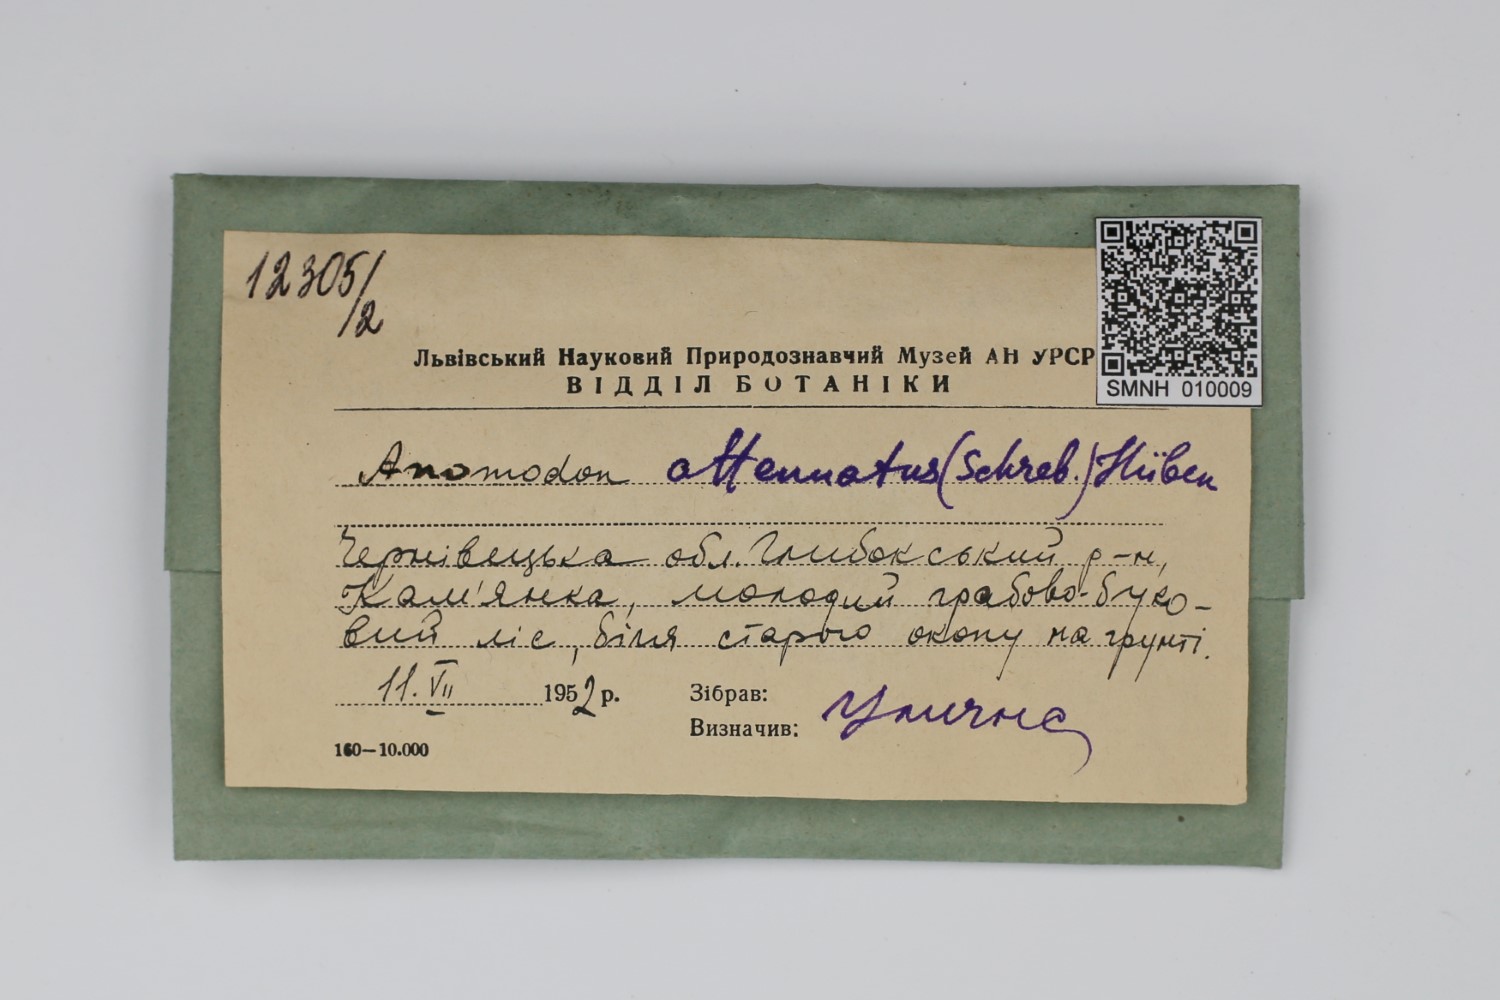 12305/2
Львівський Науковий Природознавчий Музей АН УРСР
ВІДДІЛ БОТАНІКИ
SMNH 010009
Anomodon attenuatus (Schreb.) Hüben
Чернівецька обл. Глибокський р-н,
Кам'янка, молодий грабово-буко-
вий ліс, біля старого окопу на грунті.
11.VII 1952 р.
Зібрав:
Визначив: Улична
160—10.000